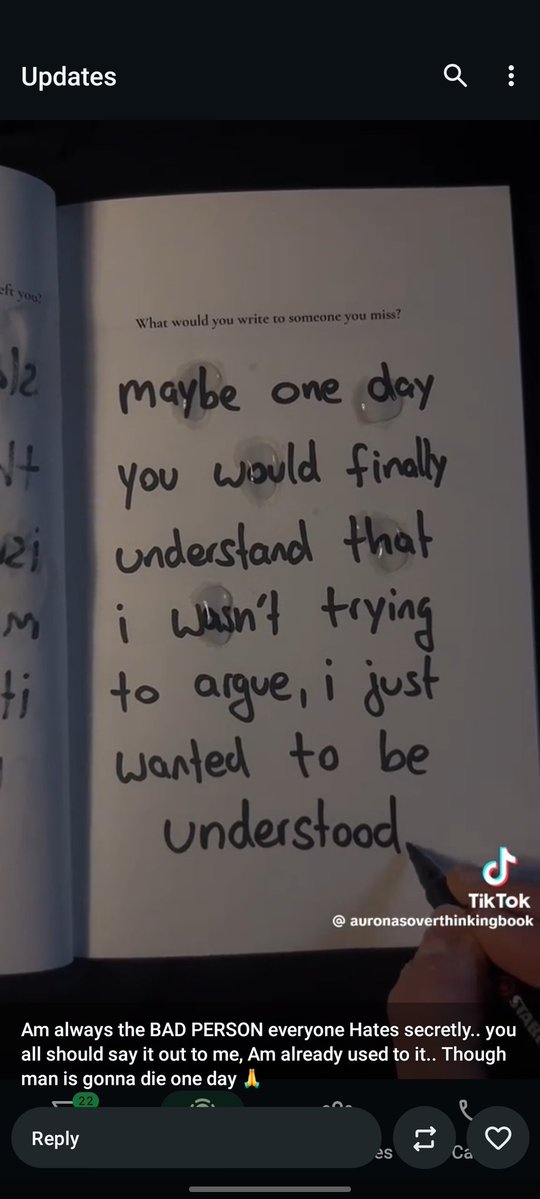 Updates
eft you?
What would you write to someone you miss?
maybe one day
you would finally
understand that
i wasn't trying
to argue, i just
wanted to be
understood
TikTok
@ auronasoverthinkingbook
Am always the BAD PERSON everyone Hates secretly.. you
all should say it out to me, Am already used to it.. Though
man is gonna die one day 🙏
22
Reply